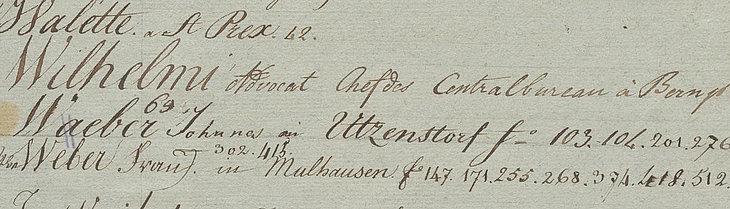 Walette. a St Prex. 42.
Wilhelmi Advocat Chef des Centralbureau à Bern
69.
Waeber Johannes in Utzenstorf fo 103. 104. 201. 276
302. 413.
Weber Franz. in Mulhausen fo 147. 171. 255. 268. 374. 418. 512.